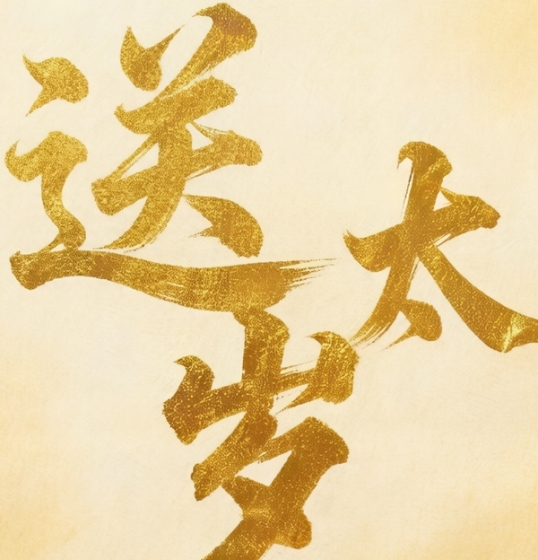 送太岁